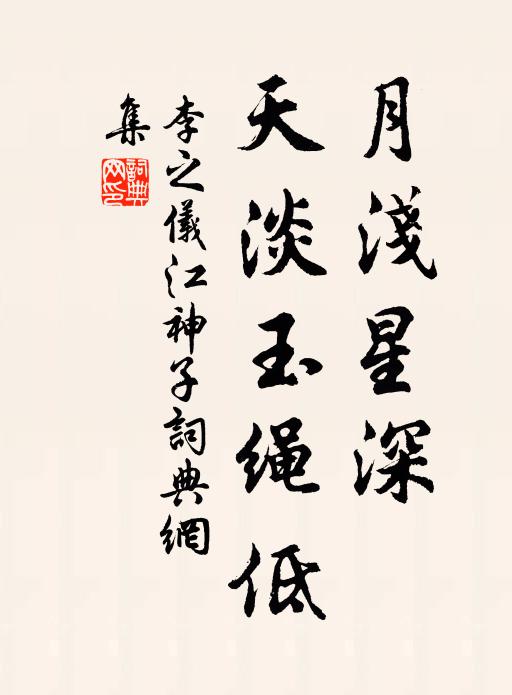 月淺星深
天淡玉绳低
李之儀江神子詞典網
集
詞典網印